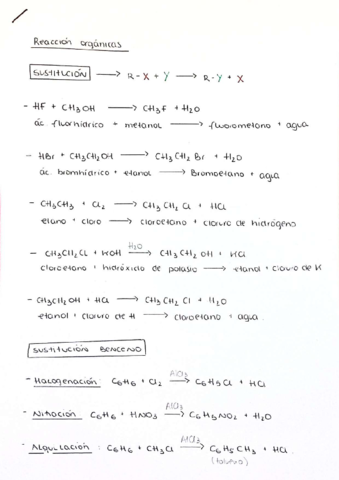 Reacción orgánicas
SUSTITUCIÓN → R-X + Y → R-Y + X
- HF + CH3OH → CH3F + H2O
ác. fluorhídrico + metanol → fluorometano + agua
- HBr + CH3CH2OH → CH3CH2Br + H2O
ác. bromhídrico + etanol → Bromoetano + agua
- CH3CH3 + Cl2 → CH3CH2Cl + HCl
etano + cloro → cloroetano + cloruro de hidrógeno
- CH3CH2Cl + KOH H2O→ CH3CH2OH + KCl
cloroetano + hidróxido de potasio → etanol + cloruro de K
- CH3CH2OH + HCl → CH3CH2Cl + H2O
etanol + cloruro de H → cloroetano + agua.
SUSTITUCIÓN BENCENO
- Halogenación: C6H6 + Cl2 AlCl3→ C6H5Cl + HCl
- Nitración: C6H6 + HNO3 AlCl3→ C6H5NO2 + H2O
- Alquilación: C6H6 + CH3Cl AlCl3→ C6H5CH3 + HCl.
(tolueno)